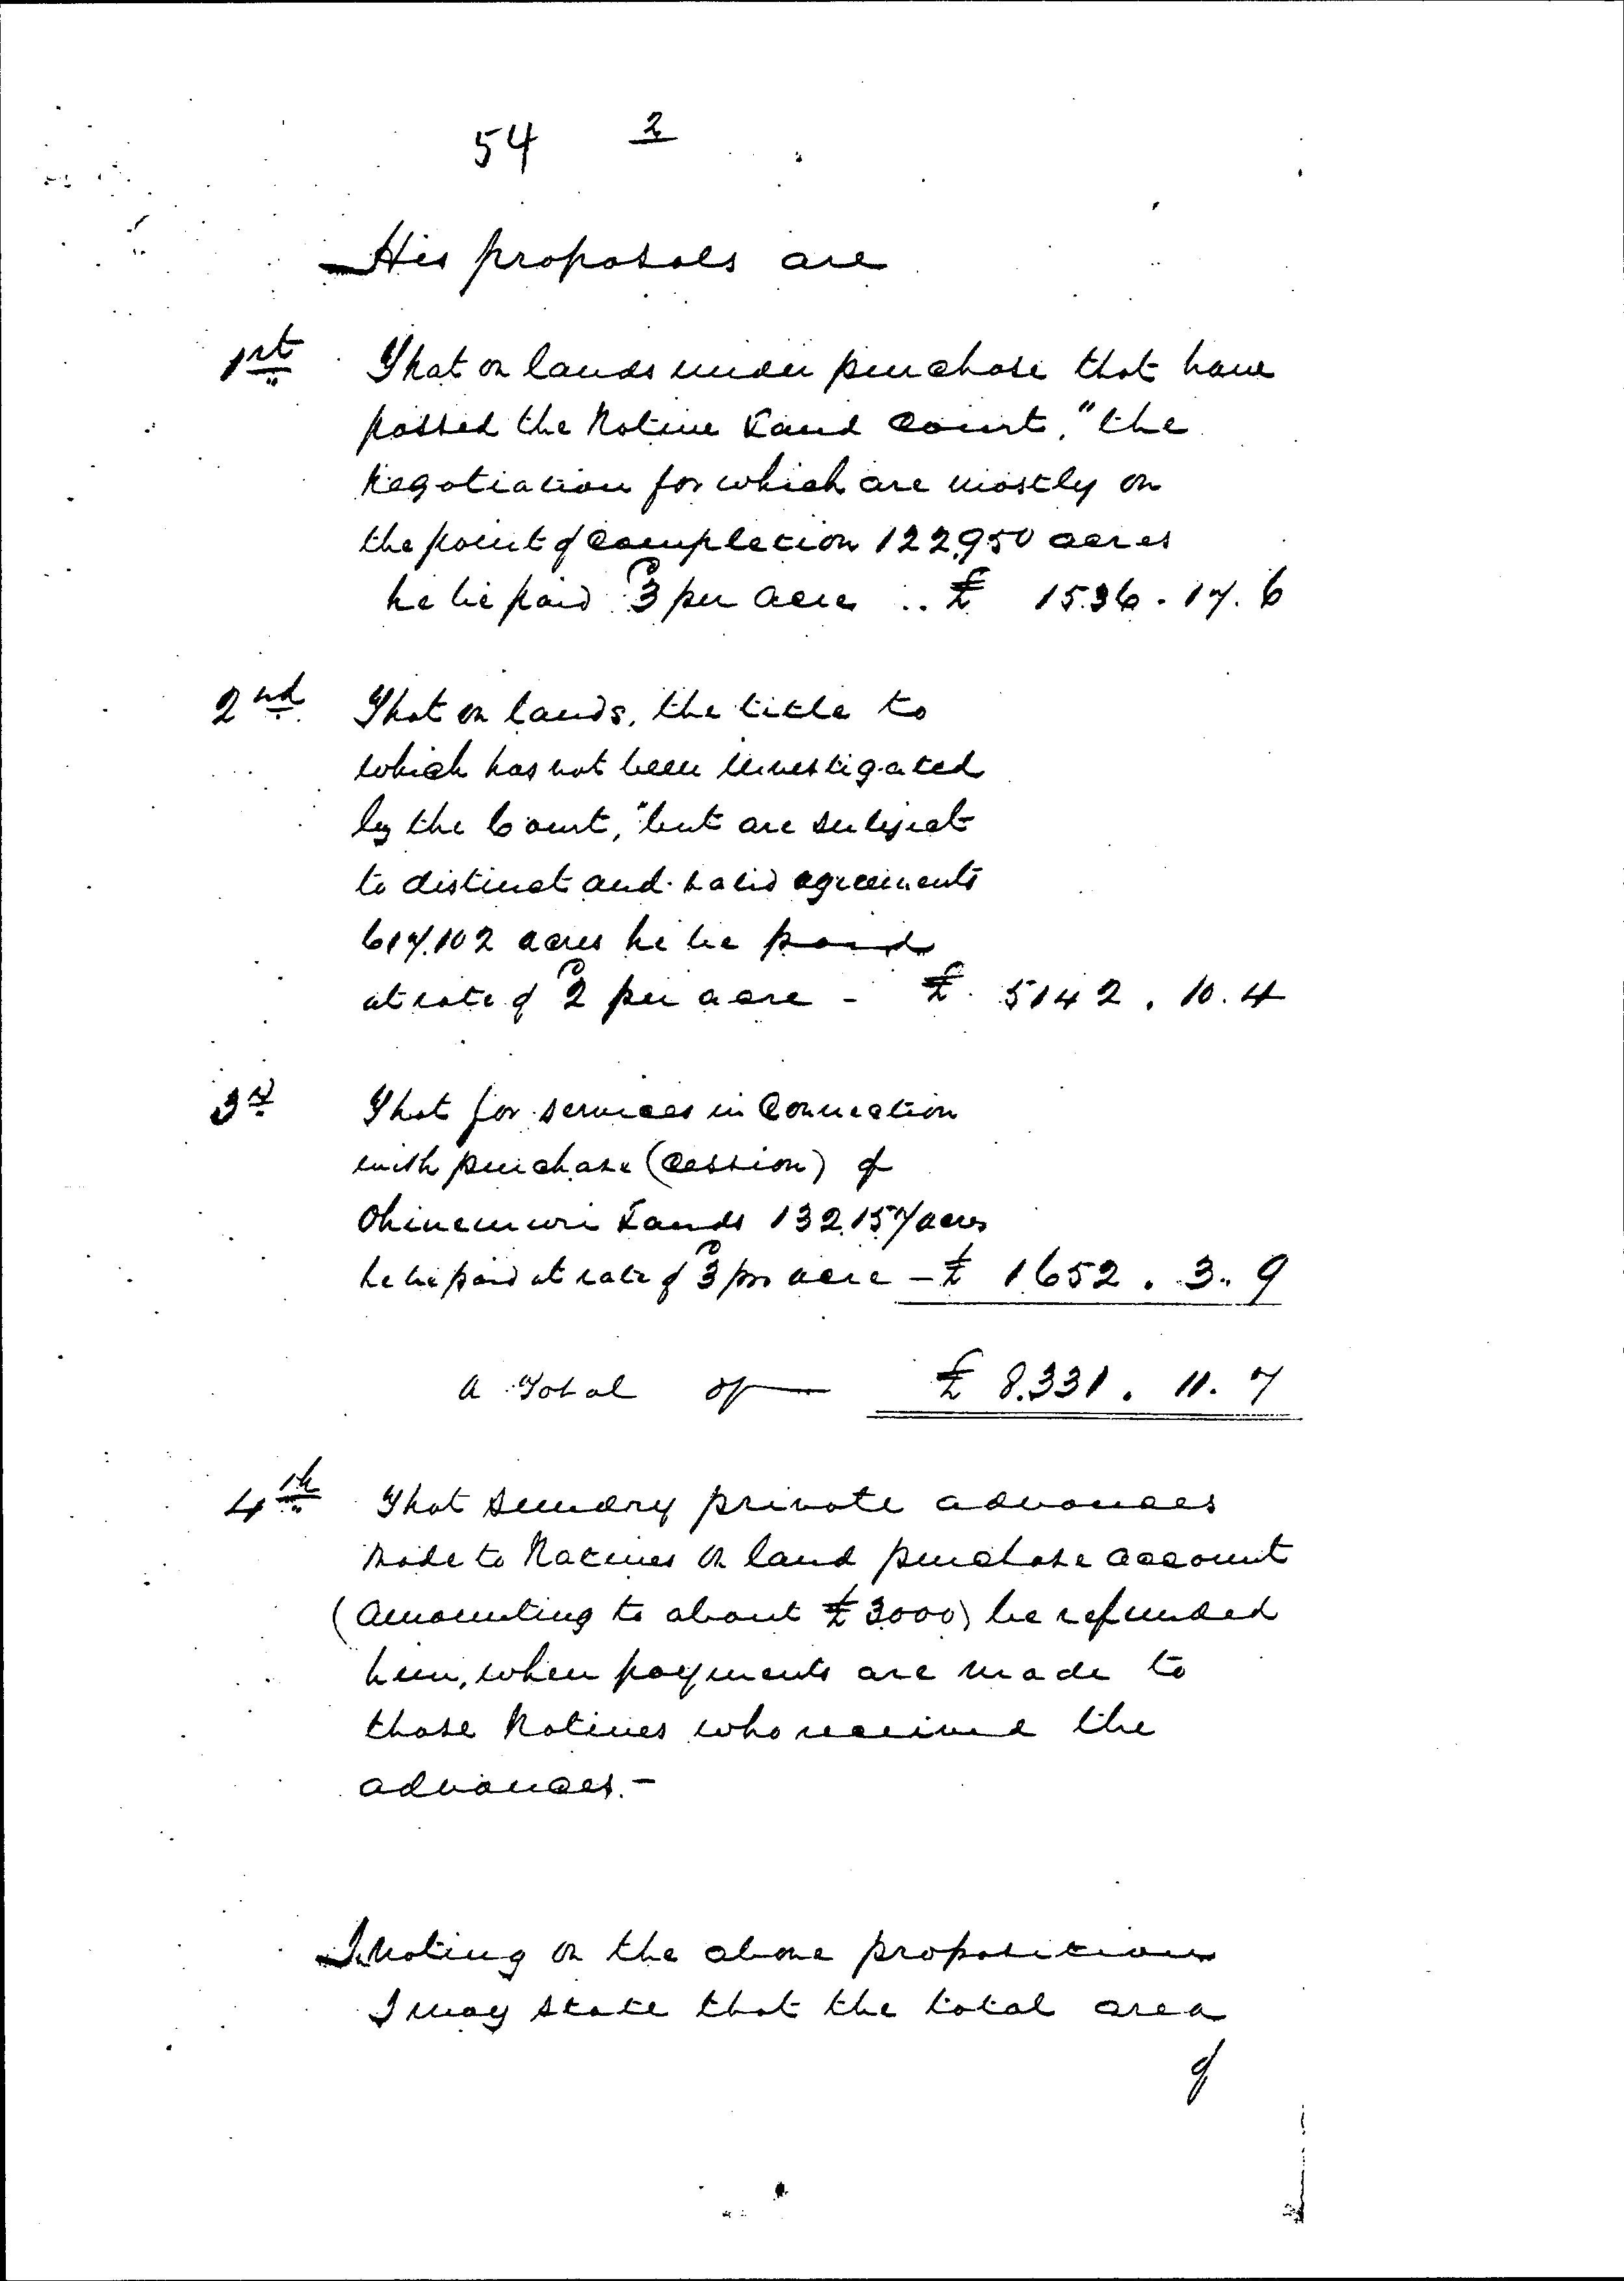 54 2
His proposals are
1st That on lands under purchase that have
passed the Native Land Court, "the
Negotiation for which are mostly on
the point of Completion 122,950 acres
he be paid 3d per acre .. £ 1536.17.6
2nd That on lands, the title to
which has not been investigated
by the Court, "but are subject
to distinct and valid agreements
617.102 acres he be paid
at rate of 2d per acre - £ 5142.10.4
3rd That for services in Connection
with purchase (Cession) of
Ohinemuri Lands 132.157 acres
he be paid at rate of 3d per acre - £ 1652.3.9
A Total of £ 8.331.11.7
4th That sundry private advances
made to Natives on land purchase account
(amounting to about £3000) be refunded
him, when payments are made to
those Natives who received the
advances.-
Noting on the above propositions
I may state that the total area
of